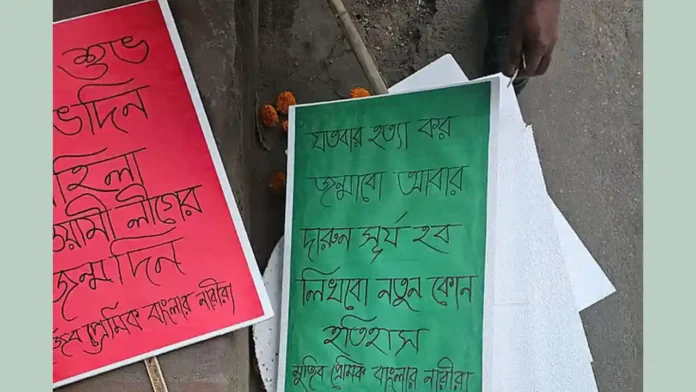 শুভ
ভদিন
মহিলা
ওয়ামী লীগের
জন্মদিন
মুজিব প্রেমিক বাংলার নারীরা
যতবার হত্যা কর
জন্মাবো আবার
দারুন সূর্য হব
লিখবো নতুন কোন
ইতিহাস
মুজিব প্রেমিক বাংলার নারীরা